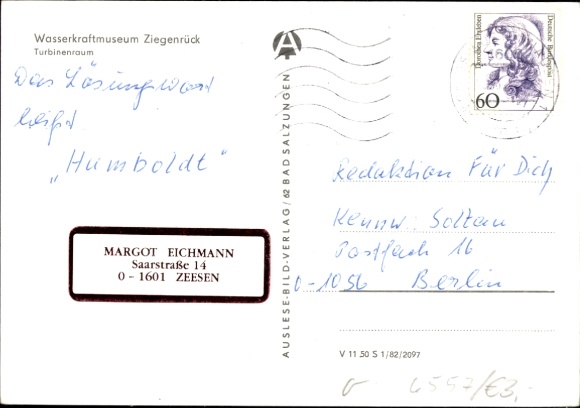 Wasserkraftmuseum Ziegenrück
Turbinenraum
Das Lösungswort
heißt
„Humboldt"
MARGOT EICHMANN
Saarstraße 14
O - 1601 ZEESEN
AUSLESE-BILD-VERLAG / 62 BAD SALZUNGEN
Dorothea Erxleben
Deutsche Bundespost
60
Redaktion Für Dich
Kennw. Soltau
Postfach 16
O-1056 Berlin
V 11 50 S 1/82/2097